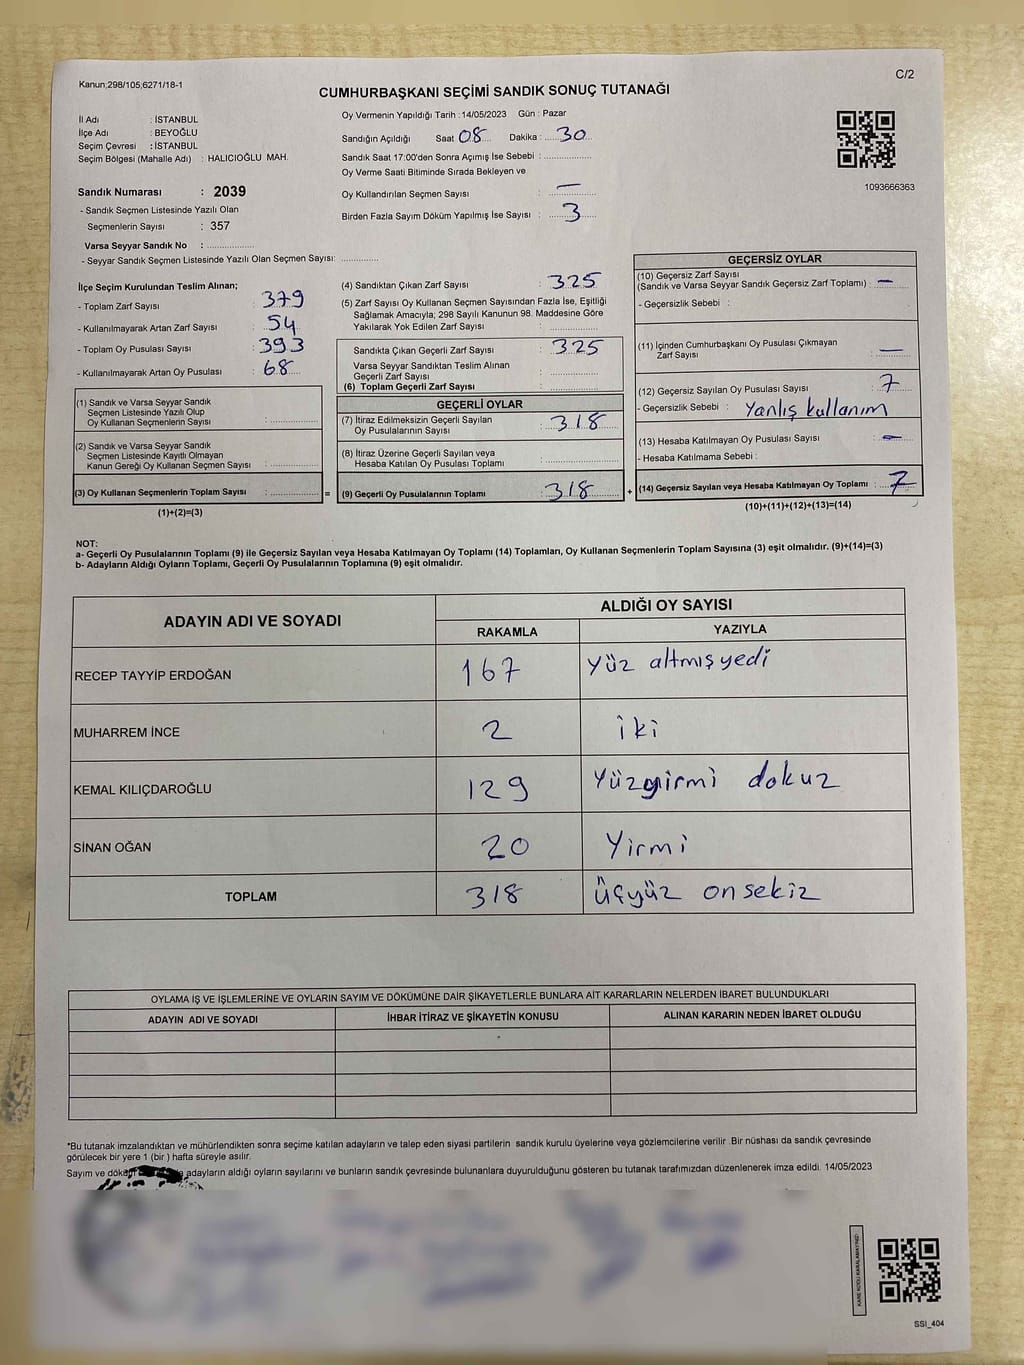 Kanun;298/105;6271/18-1
C/2
CUMHURBAŞKANI SEÇİMİ SANDIK SONUÇ TUTANAĞI
İl Adı : İSTANBUL
İlçe Adı : BEYOĞLU
Seçim Çevresi : İSTANBUL
Seçim Bölgesi (Mahalle Adı) : HALICIOĞLU MAH.
Sandık Numarası : 2039
- Sandık Seçmen Listesinde Yazılı Olan
Seçmenlerin Sayısı : 357
Varsa Seyyar Sandık No : ................
- Seyyar Sandık Seçmen Listesinde Yazılı Olan Seçmen Sayısı: .............
Oy Vermenin Yapıldığı Tarih : 14/05/2023 Gün : Pazar
Sandığın Açıldığı Saat 08 Dakika : 30
Sandık Saat 17:00'den Sonra Açımış İse Sebebi : ................
Oy Verme Saati Bitiminde Sırada Bekleyen ve
Oy Kullandırılan Seçmen Sayısı : —
Birden Fazla Sayım Döküm Yapılmış İse Sayısı : 3
1093666363
İlçe Seçim Kurulundan Teslim Alınan;
- Toplam Zarf Sayısı : 379
- Kullanılmayarak Artan Zarf Sayısı : 54
- Toplam Oy Pusulası Sayısı : 393
- Kullanılmayarak Artan Oy Pusulası : 68
(1) Sandık ve Varsa Seyyar Sandık
Seçmen Listesinde Yazılı Olup
Oy Kullanan Seçmenlerin Sayısı : ................
(2) Sandık ve Varsa Seyyar Sandık
Seçmen Listesinde Kayıtlı Olmayan
Kanun Gereği Oy Kullanan Seçmen Sayısı : ................
(3) Oy Kullanan Seçmenlerin Toplam Sayısı : ................ =
(1)+(2)=(3)
(4) Sandıktan Çıkan Zarf Sayısı : 325
(5) Zarf Sayısı Oy Kullanan Seçmen Sayısından Fazla İse, Eşitliği
Sağlamak Amacıyla; 298 Sayılı Kanunun 98. Maddesine Göre
Yakılarak Yok Edilen Zarf Sayısı : ................
Sandıkta Çıkan Geçerli Zarf Sayısı : 325
Varsa Seyyar Sandıktan Teslim Alınan
Geçerli Zarf Sayısı : ................
(6) Toplam Geçerli Zarf Sayısı : ................
GEÇERLİ OYLAR
(7) İtiraz Edilmeksizin Geçerli Sayılan
Oy Pusulalarının Sayısı : 318
(8) İtiraz Üzerine Geçerli Sayılan veya
Hesaba Katılan Oy Pusulası Toplamı : ................
(9) Geçerli Oy Pusulalarının Toplamı : 318 +
GEÇERSİZ OYLAR
(10) Geçersiz Zarf Sayısı
(Sandık ve Varsa Seyyar Sandık Geçersiz Zarf Toplamı) : —
- Geçersizlik Sebebi :
(11) İçinden Cumhurbaşkanı Oy Pusulası Çıkmayan
Zarf Sayısı : —
(12) Geçersiz Sayılan Oy Pusulası Sayısı : 7
- Geçersizlik Sebebi : Yanlış kullanım
(13) Hesaba Katılmayan Oy Pusulası Sayısı : -
- Hesaba Katılmama Sebebi :
(14) Geçersiz Sayılan veya Hesaba Katılmayan Oy Toplamı : 7
(10)+(11)+(12)+(13)=(14)
NOT:
a- Geçerli Oy Pusulalarının Toplamı (9) ile Geçersiz Sayılan veya Hesaba Katılmayan Oy Toplamı (14) Toplamları, Oy Kullanan Seçmenlerin Toplam Sayısına (3) eşit olmalıdır. (9)+(14)=(3)
b- Adayların Aldığı Oyların Toplamı, Geçerli Oy Pusulalarının Toplamına (9) eşit olmalıdır.
ADAYIN ADI VE SOYADI
ALDIĞI OY SAYISI
RAKAMLA YAZIYLA
RECEP TAYYİP ERDOĞAN 167 Yüz altmış yedi
MUHARREM İNCE 2 iki
KEMAL KILIÇDAROĞLU 129 Yüzyirmi dokuz
SİNAN OĞAN 20 Yirmi
TOPLAM 318 üçyüz onsekiz
OYLAMA İŞ VE İŞLEMLERİNE VE OYLARIN SAYIM VE DÖKÜMÜNE DAİR ŞİKAYETLERLE BUNLARA AİT KARARLARIN NELERDEN İBARET BULUNDUKLARI
ADAYIN ADI VE SOYADI İHBAR İTİRAZ VE ŞİKAYETİN KONUSU ALINAN KARARIN NEDEN İBARET OLDUĞU
*Bu tutanak imzalandıktan ve mühürlendikten sonra seçime katılan adayların ve talep eden siyasi partilerin sandık kurulu üyelerine veya gözlemcilerine verilir .Bir nüshası da sandık çevresinde
görülecek bir yere 1 (bir ) hafta süreyle asılır.
Sayım ve adayların aldığı oyların sayılarını ve bunların sandık çevresinde bulunanlara duyurulduğunu gösteren bu tutanak tarafımızdan düzenlenerek imza edildi. 14/05/2023
SSI_404